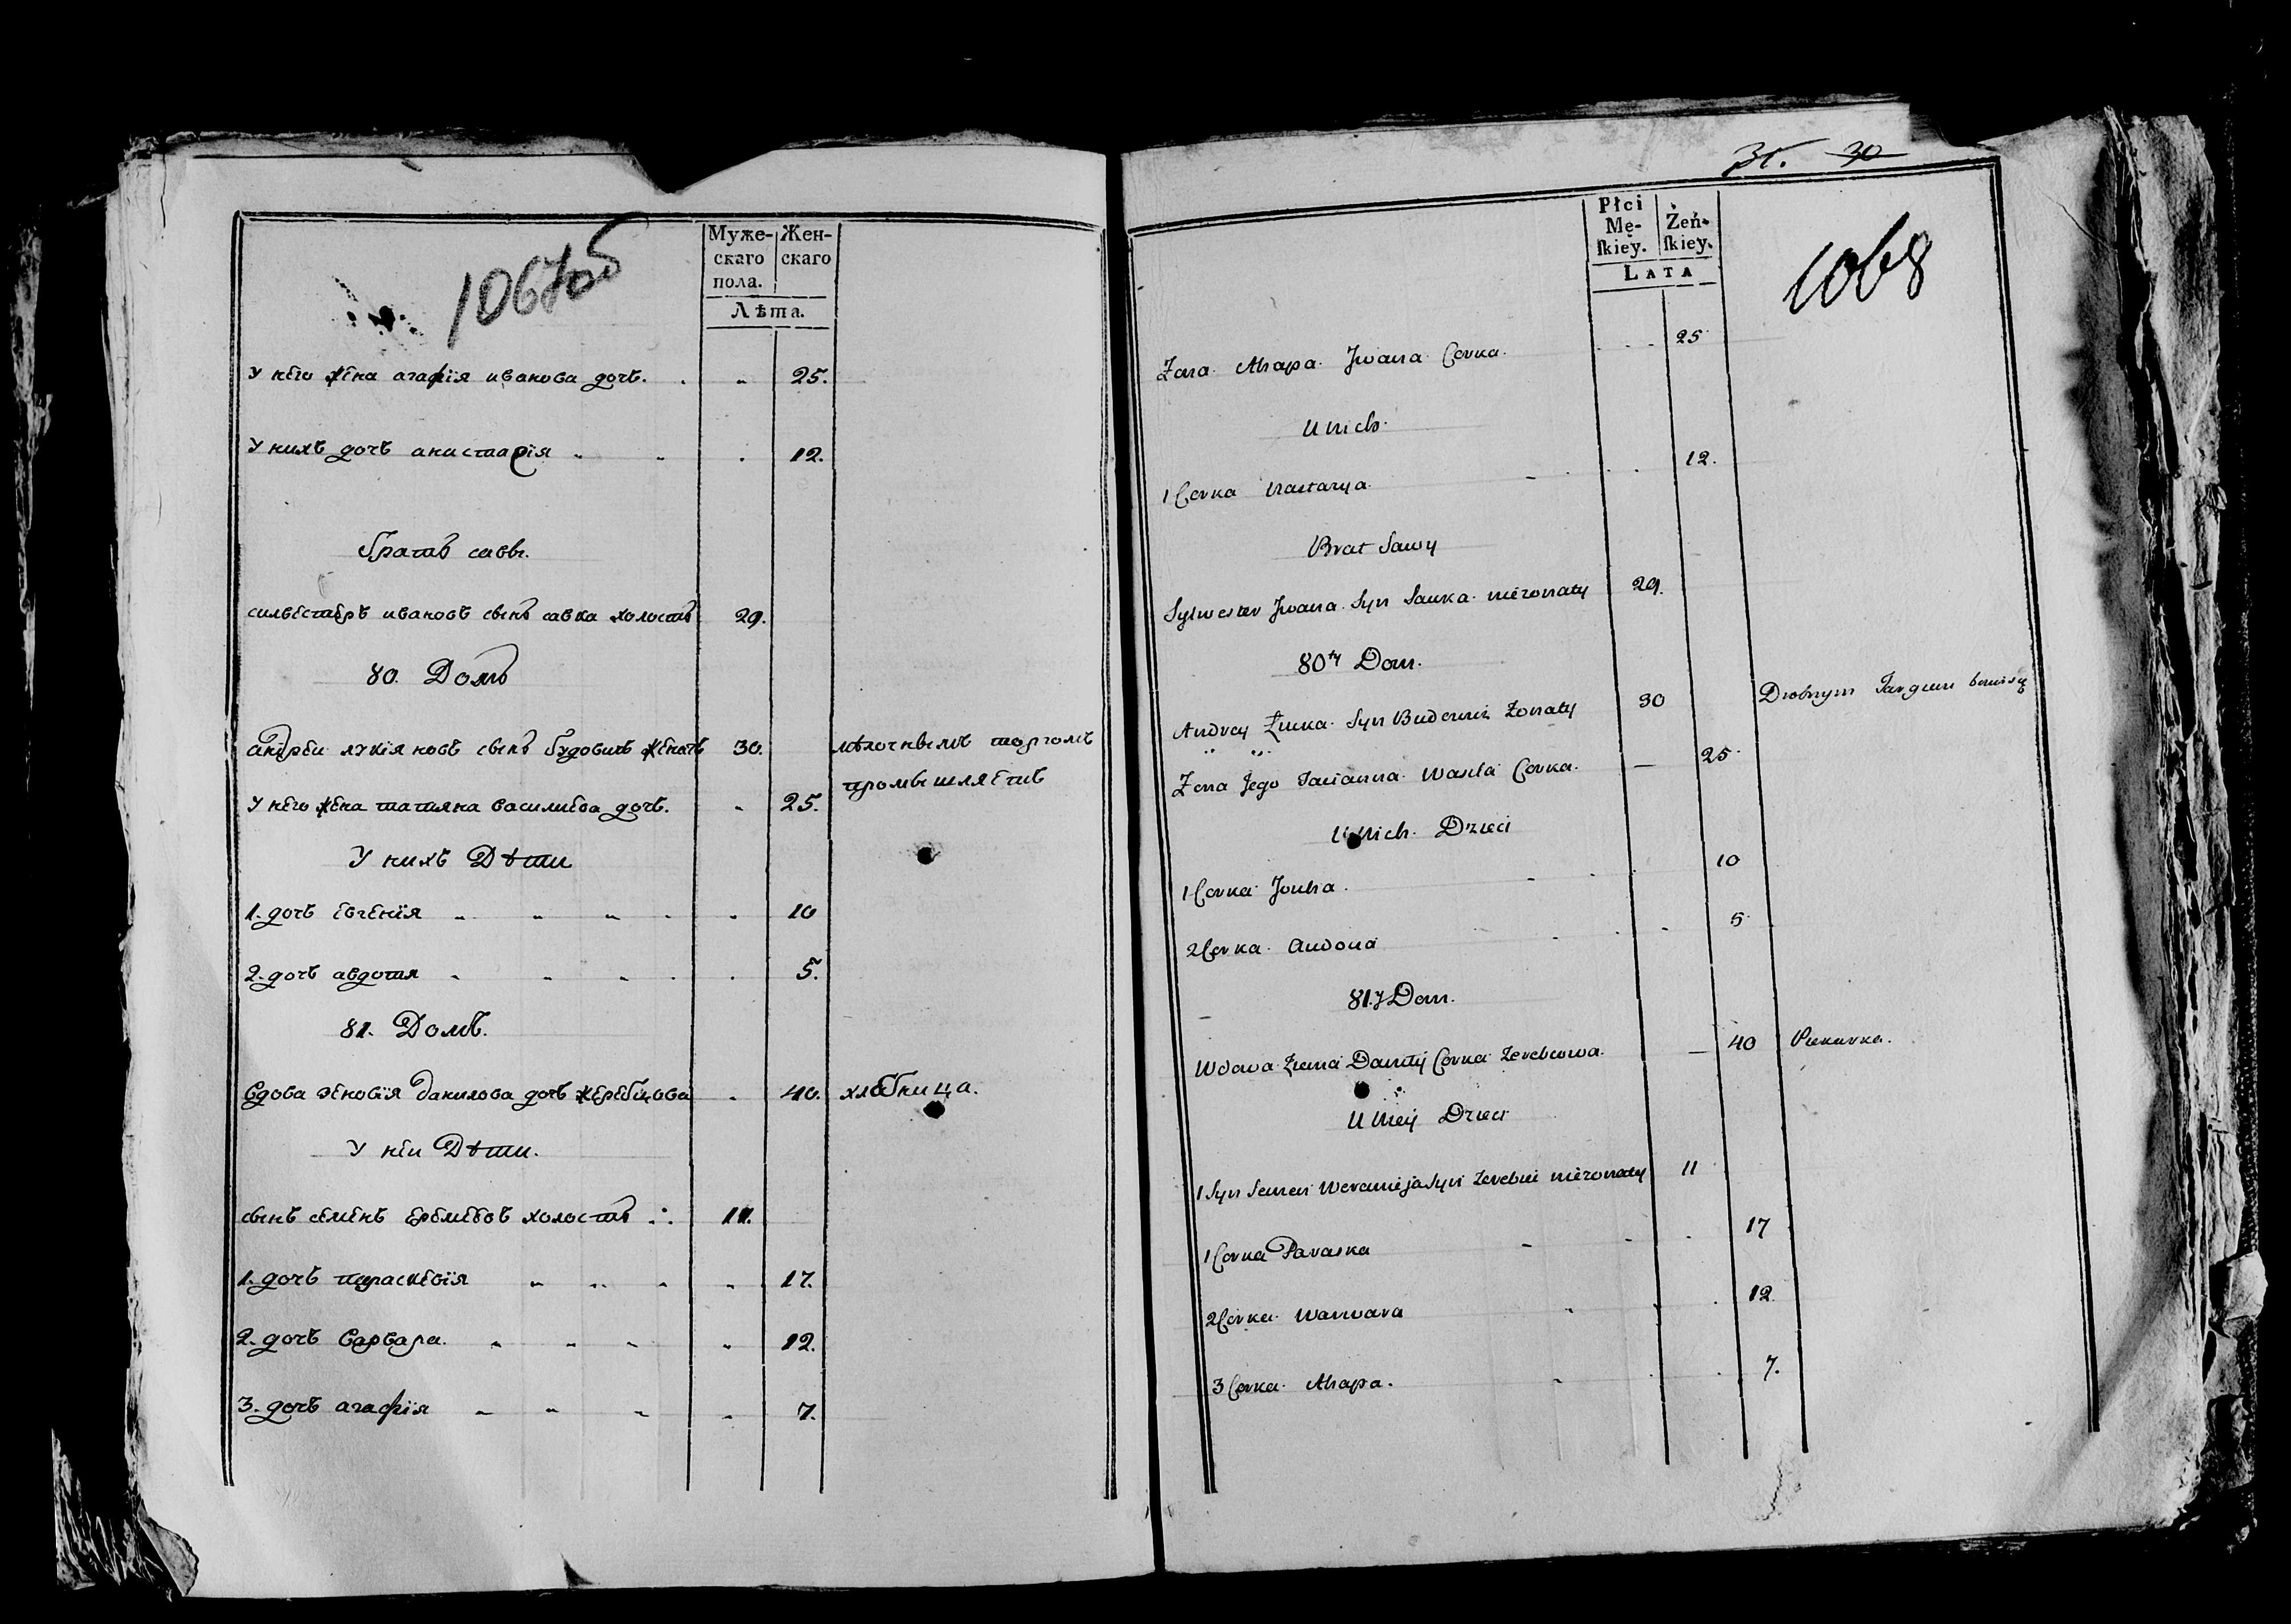 1067об
Муже-
скаго
пола.
Жен-
скаго
Лѣта.
у него жена агафія иванова дочь. 25.
У нихъ дочь анастасія 12.
братъ саввы.
сильвестеръ ивановъ сынъ савка холостъ 29.
80. Домъ
андреи лукіяновъ сынъ будовичъ женатъ 30. мѣлочнымъ торгомъ
промышляетъ
у него жена татияна василиева дочь. 25.
У нихъ Дѣти
1. дочь евгенія 10
2. дочь авдотя 5.
81. Домъ.
вдова зеновія данилова дочь жеребцова 40. хлѣбница.
У неи Дѣти.
сынъ семенъ еремеевъ холостъ 11.
1. дочь параскевія 17.
2. дочь варвара. 12.
3. дочь агафія 7.
31. 30
1068
Płci
Mę-
ſkiey.
Żeń-
ſkiey.
LATA
Zona Ahapa Jwana Corka. 25
U nich
1 Corka Nastazya 12.
Brat Sawy
Sylwester Jwana Syn Sauka niezonaty 29.
80ty Dom.
Andrey Łuka Syn Budowicz Zonaty 30 Drobnym Targiem bawi się
Zona Jego Tacianna Wasila Corka. 25
U Nich Dzieci
1 Corka Jouha 10
2 Corka Audocia 5
81.y Dom.
Wdowa Zienia Daniły Corka Zerebcowa. 40 Piekarka.
U Niey Dzieci
1 Syn Semen Weramieja Syn niezonaty 11
1 Corka Paraska 17
2 Corka Warwara 12
3 Corka Ahapa. 7.